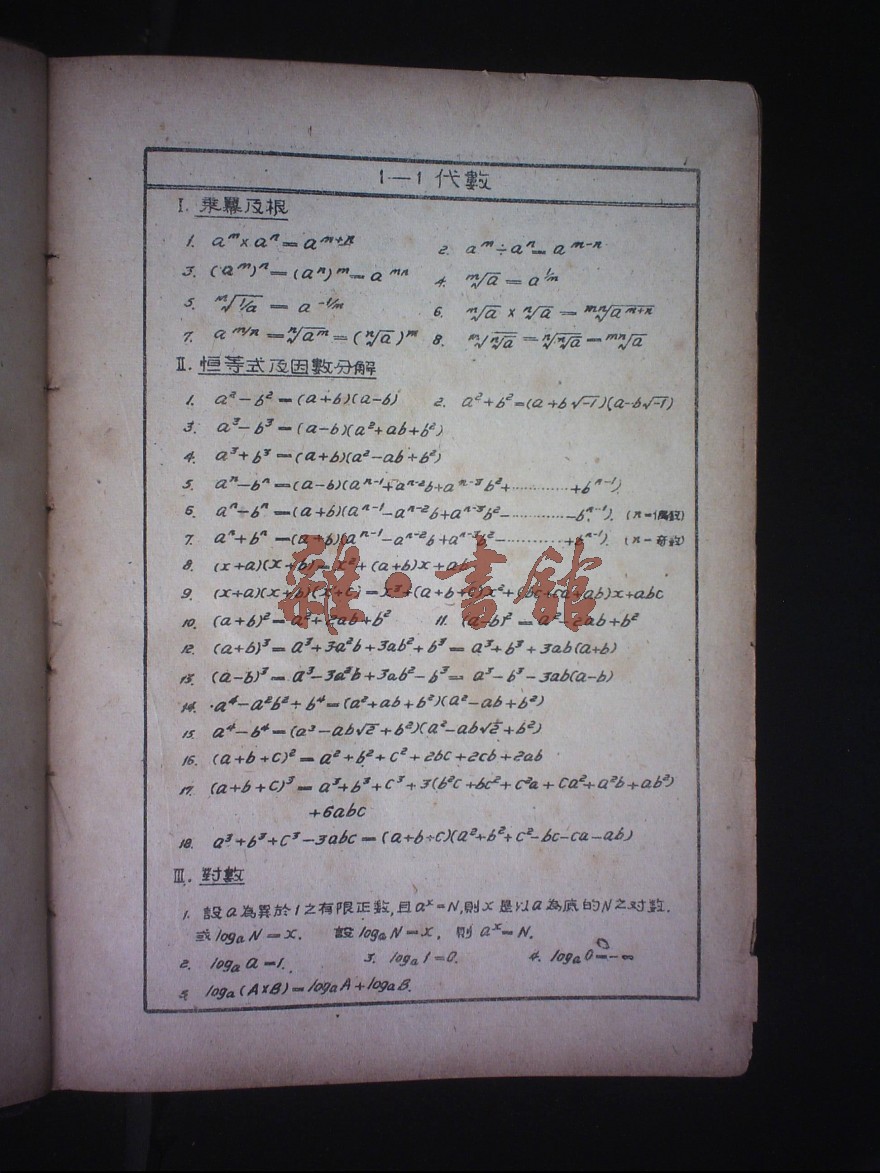 1—1 代數
I. 乘冪及根
1. aᵐ×aⁿ=aᵐ⁺ⁿ 2. aᵐ÷aⁿ=aᵐ⁻ⁿ
3. (aᵐ)ⁿ=(aⁿ)ᵐ=aᵐⁿ 4. ᵐ√a=a^(1/m)
5. ᵐ√(1/a)=a^(-1/m) 6. ᵐ√a×ⁿ√a=ᵐⁿ√(aᵐ⁺ⁿ)
7. a^(m/n)=ⁿ√(aᵐ)=(ⁿ√a)ᵐ 8. ᵐ√(ⁿ√a)=ⁿ√(ⁿ√a)=ᵐⁿ√a
II. 恒等式及因數分解
1. a²-b²=(a+b)(a-b) 2. a²+b²=(a+b√-1)(a-b√-1)
3. a³-b³=(a-b)(a²+ab+b²)
4. a³+b³=(a+b)(a²-ab+b²)
5. aⁿ-bⁿ=(a-b)(aⁿ⁻¹+aⁿ⁻²b+aⁿ⁻³b²+…………+bⁿ⁻¹).
6. aⁿ-bⁿ=(a+b)(aⁿ⁻¹-aⁿ⁻²b+aⁿ⁻³b²-…………-bⁿ⁻¹). (n=偶数)
7. aⁿ+bⁿ=(a+b)(aⁿ⁻¹-aⁿ⁻²b+aⁿ⁻³b²-…………+bⁿ⁻¹). (n=奇数)
雜·書館
8. (x+a)(x+b)=x²+(a+b)x+ab
9. (x+a)(x+b)(x+c)=x³+(a+b+c)x²+(bc+ca+ab)x+abc
10. (a+b)²=a²+2ab+b² 11. (a-b)²=a²-2ab+b²
12. (a+b)³=a³+3a²b+3ab²+b³=a³+b³+3ab(a+b)
13. (a-b)³=a³-3a²b+3ab²-b³=a³-b³-3ab(a-b)
14. a⁴-a²b²+b⁴=(a²+ab+b²)(a²-ab+b²)
15. a⁴-b⁴=(a³-ab√2+b²)(a²-ab√2+b²)
16. (a+b+c)²=a²+b²+c²+2bc+2cb+2ab
17. (a+b+c)³=a³+b³+c³+3(b²c+bc²+c²a+ca²+a²b+ab²)
+6abc
18. a³+b³+c³-3abc=(a+b+c)(a²+b²+c²-bc-ca-ab)
III. 對數
1. 設a為異於1之有限正數,且aˣ=N,則x是以a為底的N之对數.
或logₐN=x. 設logₐN=x, 則aˣ=N.
2. logₐa=1. 3. logₐ1=0. 4. logₐ0=-∞
5. logₐ(A×B)=logₐA+logₐB.